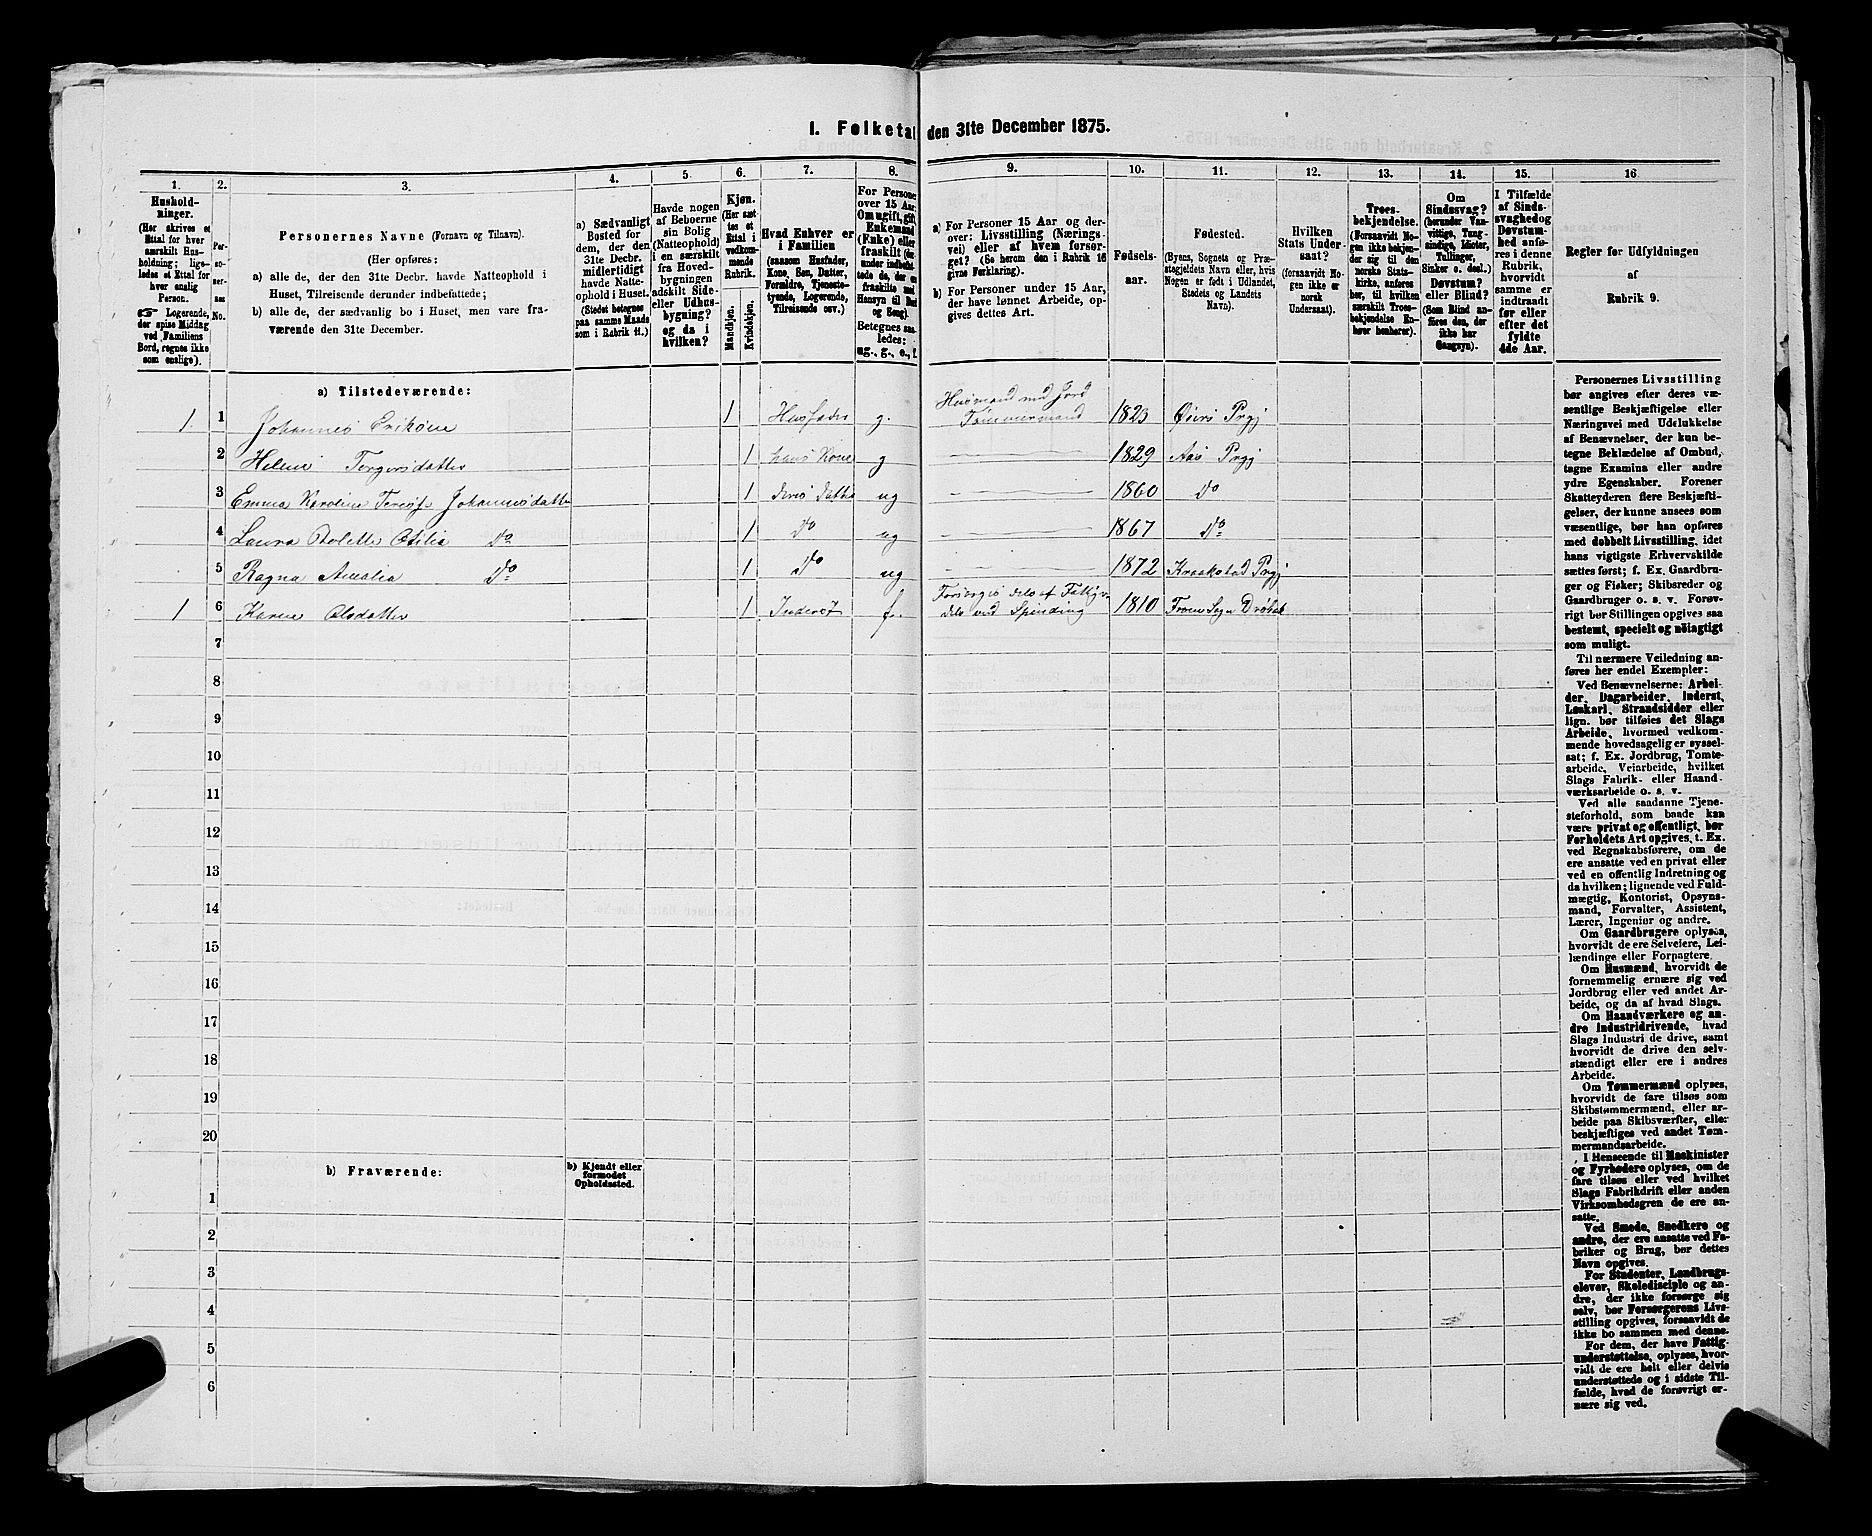 I. Folketal den 31te December 1875.
1.
2.
3.
4.
5.
6.
7.
8.
9.
10.
11.
12.
13.
14.
15.
16
Hushold-
ninger.
(Her skrives et
Ettal for hver
særskilt Hus-
holdning; lige-
ledes et Ettal for
hver enslig
Person.
☞ Logerende,
der spise Middag
ved Familiens
Bord, regnes ikke
som enslige).
Per-
so-
ner-
nes
No.
Personernes Navne (Fornavn og Tilnavn).
(Her opføres:
a) alle de, der den 31te Decbr. havde Natteophold i
Huset, Tilreisende derunder indbefattede;
b) alle de, der sædvanlig bo i Huset, men vare fra-
værende den 31te December.
a) Sædvanligt
Bosted for
dem, der den
31te Decbr.
midlertidigt
havde Natte-
ophold i Huset.
(Stedet betegnes
paa samme Maade
som i Rubrik 11.)
Havde nogen
af Beboerne
sin Bolig
(Natteophold)
i en særskilt
fra Hoved-
bygningen
adskilt Side-
eller Udhus-
bygning?
og da i
hvilken?
Kjøn.
(Her sæt-
tes et
Ettal i
vedkom-
mende
Rubrik.
Mandkjøn.
Kvindekjøn.
Hvad Enhver er
i Familien
(saasom Husfader,
Kone, Søn, Datter,
Forældre, Tjeneste-
tyende, Logerende,
Tilreisende osv.)
For Personer
over 15 Aar:
Om ugift, gift,
Enkemand
(Enke) eller
fraskilt
Betegnes saa-
ledes:
ug., g., e., f.
a) For Personer 15 Aar og der-
over: Livsstilling (Nærings-
vei) eller af hvem forsør-
get? (Se herom den i Rubrik 16
givne Forklaring).
b) For Personer under 15 Aar,
der have lønnet Arbeide, op-
gives dettes Art.
Fødsels-
aar.
Fødested.
(Byens, Sognets og Præ-
stegjeldets Navn eller, hvis
Nogen er født i Udlandet,
Stedets og Landets
Navn).
Hvilken
Stats Under-
saat?
(forsaavidt No-
gen ikke er
norsk
Undersaat).
Troes-
bekjendelse.
(Forsaavidt No-
gen ikke bekjen-
der sig til den
norske Stats-
kirke, anføres
her, til hvilken
særskilt Troes-
bekjendelse En-
hver henhører).
Om
Sindssvag?
(herunder Van-
vittige, Tung-
sindige, Idioter,
Tullinger,
Sinker o. desl.)
Døvstum?
eller Blind?
(Som Blind an-
føres den, der
ikke har
Gangsyn).
I Tilfælde
af Sinds-
svaghed og
Døvstum-
hed anfø-
res i denne
Rubrik,
hvorvidt
samme er
indtraadt
før eller
efter det
fyldte
4de Aar.
Regler for Udfyldningen
af
Rubrik 9.
a) Tilstedeværende:
1 1 Johannes Eriksen 1 Husfader g. Husmand med Jord Tømmermand 1823 Prgj
2 Helene Tergersdatter 1 hans Kone g 1829 Aas Prgj
3 Emma Karoline Johannesdatter 1 deres Datter ug 1860 Do
4 Laura Do 1 Do ug 1867 Do
5 Ragna Amalia Do 1 Do ug 1872 Kraakstad Prgj
1 6 Karen Olsdatter 1 f. dels ved Spinding 1810 Sogn Drøbak
7
8
9
10
11
12
13
14
15
16
17
18
19
20
b) Fraværende:
b) Kjendt eller
formodet
Opholdssted.
1
2
3
4
5
6
Personernes Livsstilling
bør angives efter deres væ-
sentlige Beskjæftigelse eller
Næringsvei med Udelukkelse
af Benævnelser, der kun be-
tegne Beklædelse af Ombud,
tagne Examina eller andre
ydre Egenskaber. Forener
Skatteyderen flere Beskjæfti-
gelser, der kunne ansees som
væsentlige, bør han opføres
med dobbelt Livsstilling, idet
hans vigtigste Erhvervskilde
sættes først; f. Ex. Gaardbru-
ger og Fisker; Skibsreder og
Gaardbruger o. s. v. Forøv-
rigt bør Stillingen opgives saa
bestemt, specielt og nøiagtigt
som muligt.
Til nærmere Veiledning an-
føres her endel Exempler:
Ved Benævnelserne: Arbei-
der, Dagarbeider, Inderst,
Løskarl, Strandsidder eller
lign. bør tilføies det Slags
Arbeide, hvormed vedkom-
mende hovedsagelig er syssel-
sat; f. Ex. Jordbrug, Tomte-
arbeide, Veiarbeide, hvilket
Slags Fabrik- eller Haand-
værksarbeide o. s. v.
Ved alle saadanne Tjene-
steforhold, som baade kan
være privat og offentligt, bør
Forholdets Art opgives, t. Ex.
ved Regnskabsførere, om de
ere ansatte ved en privat eller
ved en offentlig Indretning og
da hvilken; lignende ved Fuld-
mægtig, Kontorist, Opsyns-
mand, Forvalter, Assistent,
Lærer, Ingeniør og andre.
Om Gaardbrugere oplyses,
hvorvidt de ere Selveiere, Lei-
lændinge eller Forpagtere.
Om Husmænd, hvorvidt de
fornemmelig ernære sig ved
Jordbrug eller ved andet Ar-
beide, og da af hvad Slags.
Om Haandværkere og an-
dre Industridrivende, hvad
Slags Industri de drive, samt
hvorvidt de drive den selv-
stændigt eller ere i andres
Arbeide.
Om Tømmermænd oplyses,
hvorvidt de fare tilsøs som
Skibstømmermænd, eller ar-
beide paa Skibsværfter, eller
beskjæftiges ved andet Tøm-
mermandsarbeide.
I Henseende til Maskinister
og Fyrbødere oplyses, om de
fare tilsøs eller ved hvilket
Slags Fabrikdrift eller anden
Virksomhedsgren de ere an-
satte.
Ved Smede, Snedkere og
andre, der ere ansatte ved Fa-
briker og Brug, bør dettes
Navn opgives.
For Studenter, Landbrugs-
elever, Skoledisciple og an-
dre, der ikke forsørge sig
selv, bør Forsørgerens Livs-
stilling opgives, forsaavidt de
ikke bo sammen med denne.
For dem, der have Fattig-
understøttelse, oplyses, hvor-
vidt de ere helt eller delvis
understøttede og i sidste Til-
fælde, hvad de forøvrigt er-
nære sig ved.